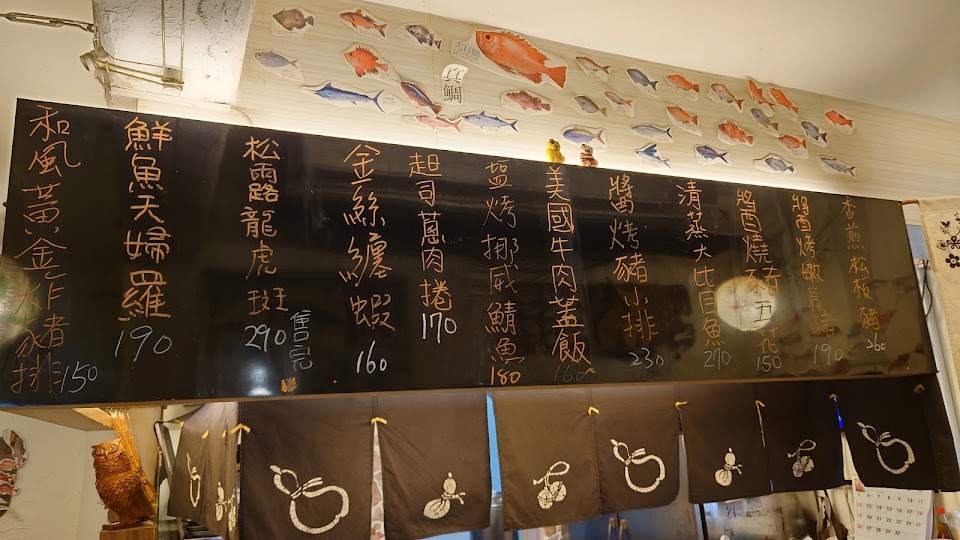 真鯛
和風黃金炸豬排 150
鮮魚天婦羅 190
松露龍虎斑 290
金絲纏蝦 160
起司蔥肉捲 170
塩烤挪威鯖魚 180
美國牛肉蓋飯 160
醬烤豬小排 230
清蒸大比目魚 270
醬燒豬五花 150
醬烤嫩肩 190
香煎松板豬 260